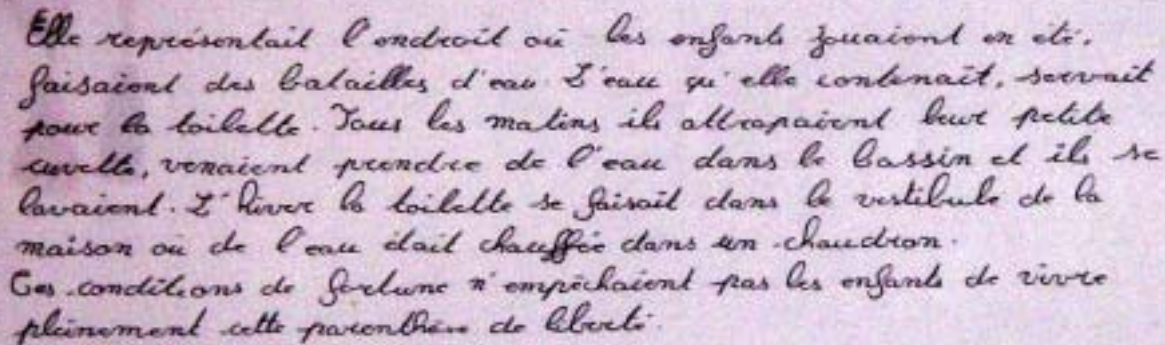 Elle représentait l'endroit où les enfants jouaient en été,
faisaient des batailles d'eau. L'eau qu'elle contenait, servait
pour la toilette. Tous les matins ils attrapaient leur petite
cuvette, venaient prendre de l'eau dans le bassin et ils se
lavaient. L'hiver la toilette se faisait dans le vestibule de la
maison où de l'eau était chauffée dans un chaudron.
Ces conditions de fortune n'empêchaient pas les enfants de vivre
pleinement cette parenthèse de liberté.